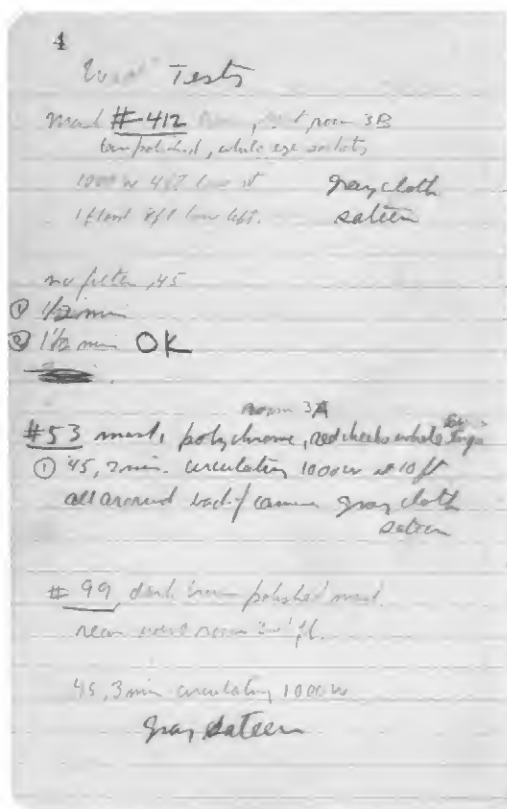 4
Tests
mask #412, room 3B
tan polished, white eye sockets
1000 w 4ft low
gray cloth
1 flood 8ft low left.
sateen
no filter, 45
① 1/2 min
② 1 1/2 min OK
room 3A
#53 mask, polychrome, red cheeks white
① 45, 2 min. circulating 1000w at 10 ft
all around back of camera gray cloth
sateen
# 99, dark brown polished mask.
rear room 2nd fl.
45, 3 min circulating 1000 w
gray sateen